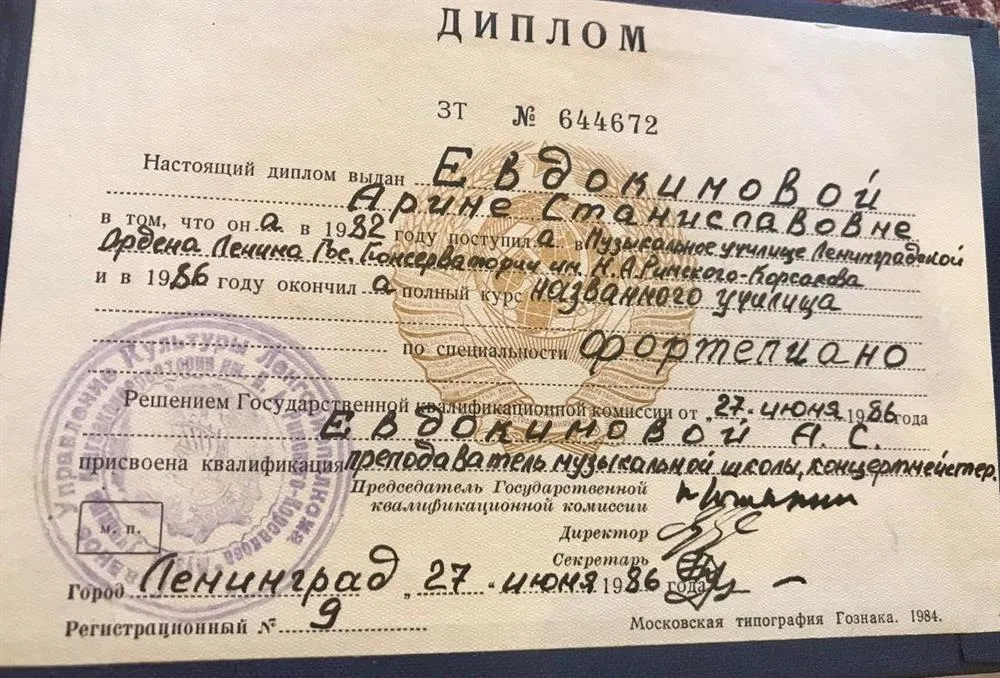 ДИПЛОМ
ЗТ № 644672
Настоящий диплом выдан Евдокимовой
Арине Станиславовне
в том, что он а в 1982 году поступил а в Музыкальное училище Ленинградской
Ордена Ленина Гос. Консерватории им. Н.А.Римского-Корсакова
и в 1986 году окончил а полный курс названного училища
по специальности фортепиано
Решением Государственной квалификационной комиссии от „27" июня 1986 года
Евдокимовой А. С.
присвоена квалификация преподаватель музыкальной школы, концертмейстер.
Председатель Государственной
квалификационной комиссии
Директор
Секретарь
м. п.
Город Ленинград „27" июня 1986 года
Регистрационный № 9
Московская типография Гознака. 1984.
Управление Культуры